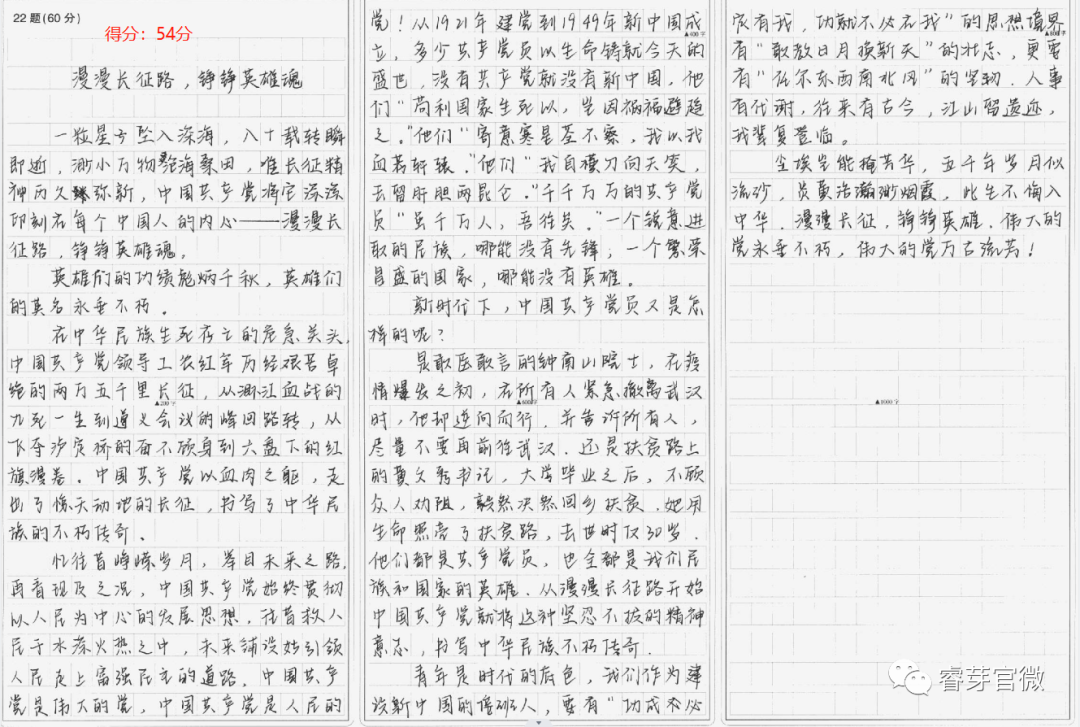 22题(60分)
得分：54分
漫漫长征路，铮铮英雄魂
一粒星子坠入深海，八十载转瞬
即逝，渺小万物沧海桑田，唯长征精
神历久弥新，中国共产党将它深深
印刻在每个中国人的内心——漫漫长
征路，铮铮英雄魂。
英雄们的功绩彪炳千秋，英雄们
的英名永垂不朽。
在中华民族生死存亡的危急关头，
中国共产党领导工农红军历经艰苦卓
绝的两万五千里长征，从湘江血战的
▲200字
九死一生到遵义会议的峰回路转，从
飞夺泸定桥的奋不顾身到六盘下的红
旗漫卷。中国共产党以血肉之躯，走
出了惊天动地的长征，书写了中华民
族的不朽传奇。
忆往昔峥嵘岁月，举目未来之路，
再看现及之况，中国共产党始终贯彻
以人民为中心的发展思想，往昔救人
民于水深火热之中，未来铺设好引领
人民走上富强民主的道路。中国共产
党是伟大的党，中国共产党是人民的
党！从1921年建党到1949年新中国成
▲400字
立，多少共产党员以生命铸就今天的
盛世，没有共产党就没有新中国，他
们“苟利国家生死以，岂因祸福避趋
之。”他们“寄意寒星荃不察，我以我
血荐轩辕。”他们“我自横刀向天笑，
去留肝胆两昆仑。”千千万万的共产党
员“虽千万人，吾往矣。”一个锐意进
取的民族，哪能没有先锋，一个繁荣
昌盛的国家，哪能没有英雄。
新时代下，中国共产党员又是怎
样的呢？
是敢医敢言的钟南山院士，在疫
情爆发之初，在所有人紧急撤离武汉
▲600字
时，他却逆向而行。并告诉所有人，
尽量不要再前往武汉。还是扶贫路上
的黄文秀书记，大学毕业之后，不顾
众人劝阻，毅然决然回乡扶贫。她用
生命照亮了扶贫路，去世时仅30岁。
他们都是共产党员，也全都是我们民
族和国家的英雄。从漫漫长征路开始
中国共产党就将这种坚忍不拔的精神
意志，书写中华民族不朽传奇。
青年是时代的底色，我们作为建
设新中国的接班人，要有“功成不必
在我，功就不必在我”的思想境界
▲800字
有“敢教日月换新天”的壮志，更要
有“任尔东西南北风”的坚韧。人事
有代谢，往来有古今，江山留遗迹，
我辈复登临。
尘埃岂能掩芳华，五千年岁月似
流砂，员莫浩瀚渺烟霞，此生不悔入
中华。漫漫长征，铮铮英雄。伟大的
党永垂不朽，伟大的党万古流芳！
▲1000字
睿芽官微